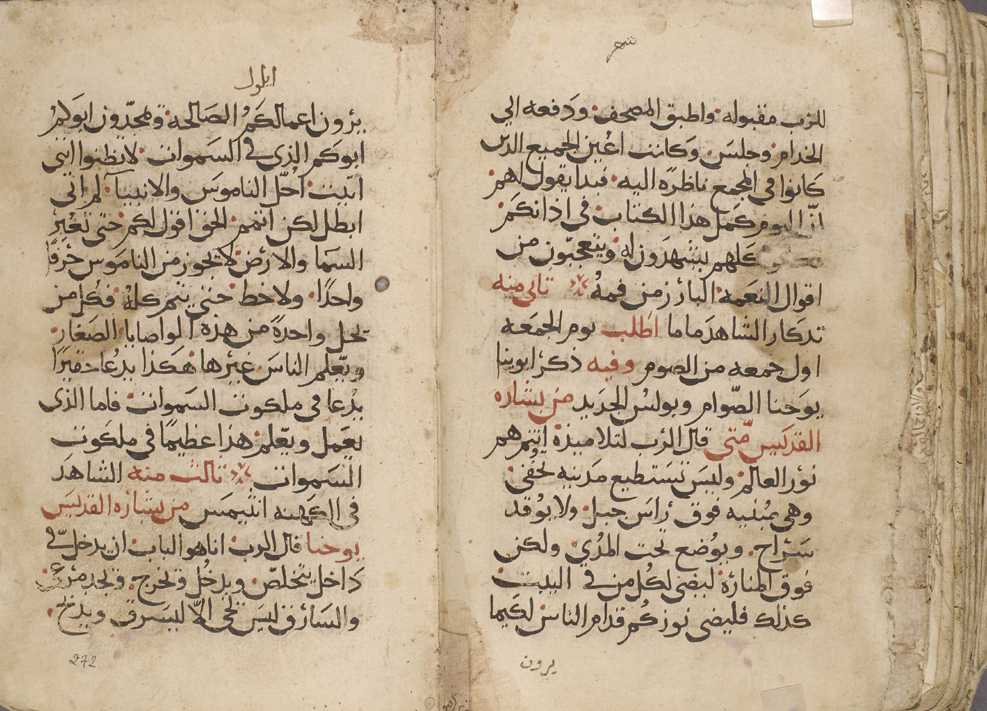 شهر
للرب مقبوله واطبق المصحف ودفعه الي
الخدام وجلس وكانت اعين الجميع الدى
كانوا في المجمع ناظره اليه فبدا يقول لهم
ان اليوم كمل هذا الكتاب في اذانكم
كلهم يشهدون له ويتعجبون من
اقوال النعمه البارز من فمه تاني منه
تدكار الشاهد ماما اطلب يوم الجمعه
اول جمعه من الصوم وفيه ذكر ابونا
يوحنا الصوام وبولس الجديد من بشاره
القديس متي قال الرب لتلاميذه انتم هم
نور العالم وليس تستطيع مدينه تخفي
وهي مبنيه فوق راس جبل ولا يوقد
سراج ويوضع تحت المدي ولكن
فوق المناره ليضي لكل من في البيت
كذلك فليضي نوركم قدام الناس لكيما
يرون
ايلول
يرون اعمالكم الصالحه ويمجدون ابوكم
ابوكم الذي في السموات لا يظنوا انني
اتيت احل الناموس والانبيا لم اتي
ابطل لكن اتمم الحق اقول لكم حتي تعبر
السما والارض لا يجوز من الناموس حرفا
واحدا ولا خط حتي يتم كله فكل من
يحل واحدة من هذه الواصايا الصغار
ويعلم الناس غيرها هكذا يدعا حقيرا
يدعا في ملكوت السموات فاما الذي
يعمل ويعلم هذا عظيما في ملكوت
السموات تالت منه الشاهد
في الكهنه انتيمس من بشاره القديس
يوحنا قال الرب انا هو الباب ان يدخل في
داخل يتخلص ويدخل ويخرج ويجد مرعي
والسارق ليس يجي الا ليسرق ويدبح
272